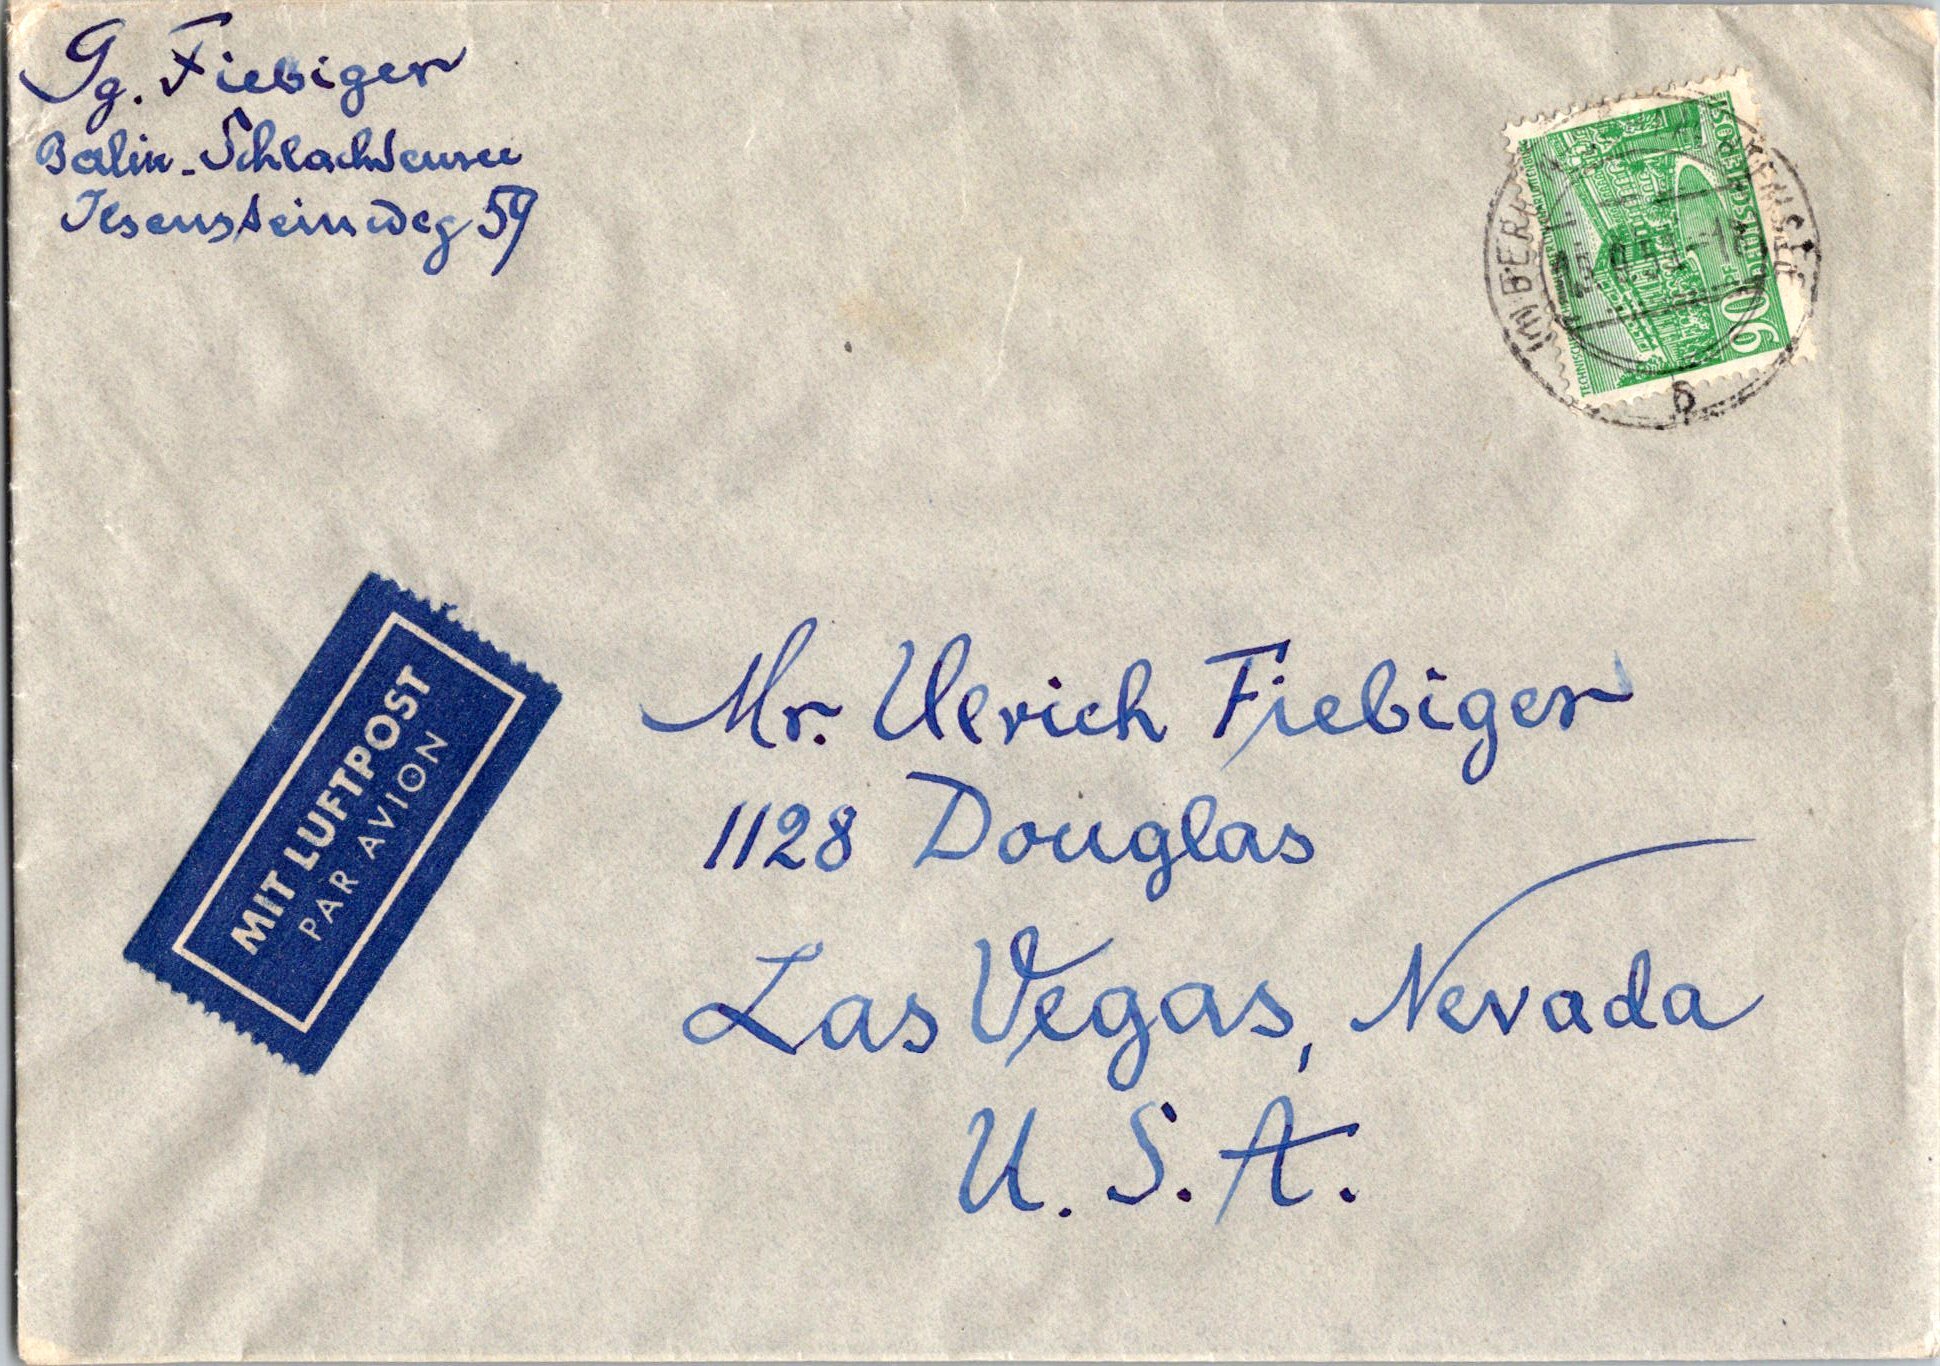 Gg. Fiebiger
Berlin-Schlachtensee
Ilsensteinweg 59
DEUTSCHE POST
60
PF
TECHNISCHE
b
MIT LUFTPOST
PAR AVION
Mr. Ulrich Fiebiger
1128 Douglas
Las Vegas, Nevada
U. S. A.